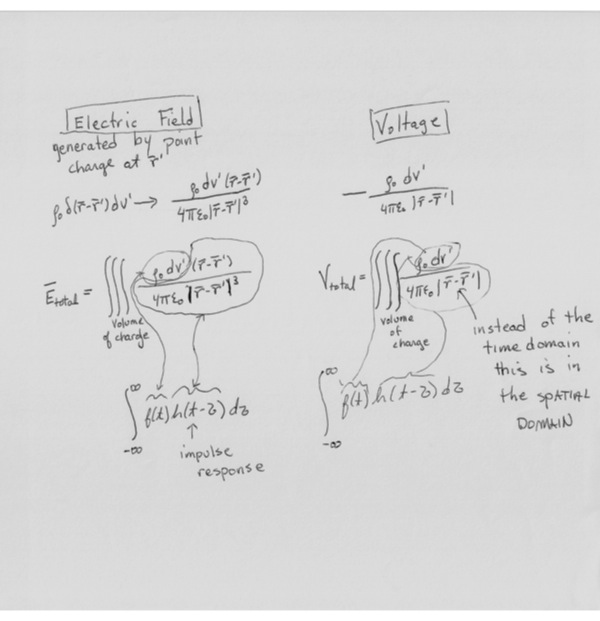 Electric Field
generated by point
charge at r̄'
ρ₀δ(r̄-r̄')dv' → ρ₀dv'(r̄-r̄') / 4πε₀|r̄-r̄'|³
Ē total = ∭ ρ₀dv'(r̄-r̄') / 4πε₀|r̄-r̄'|³
Volume
of charge
∫ -∞ ∞ f(t)h(t-τ)dτ
impulse
response
Voltage
— ρ₀dv' / 4πε₀|r̄-r̄'|
V total = ∭ ρ₀dv' / 4πε₀|r̄-r̄'|
volume
of
charge
∫ -∞ ∞ f(t)h(t-τ)dτ
instead of the
time domain
this is in
the SPATIAL
DOMAIN